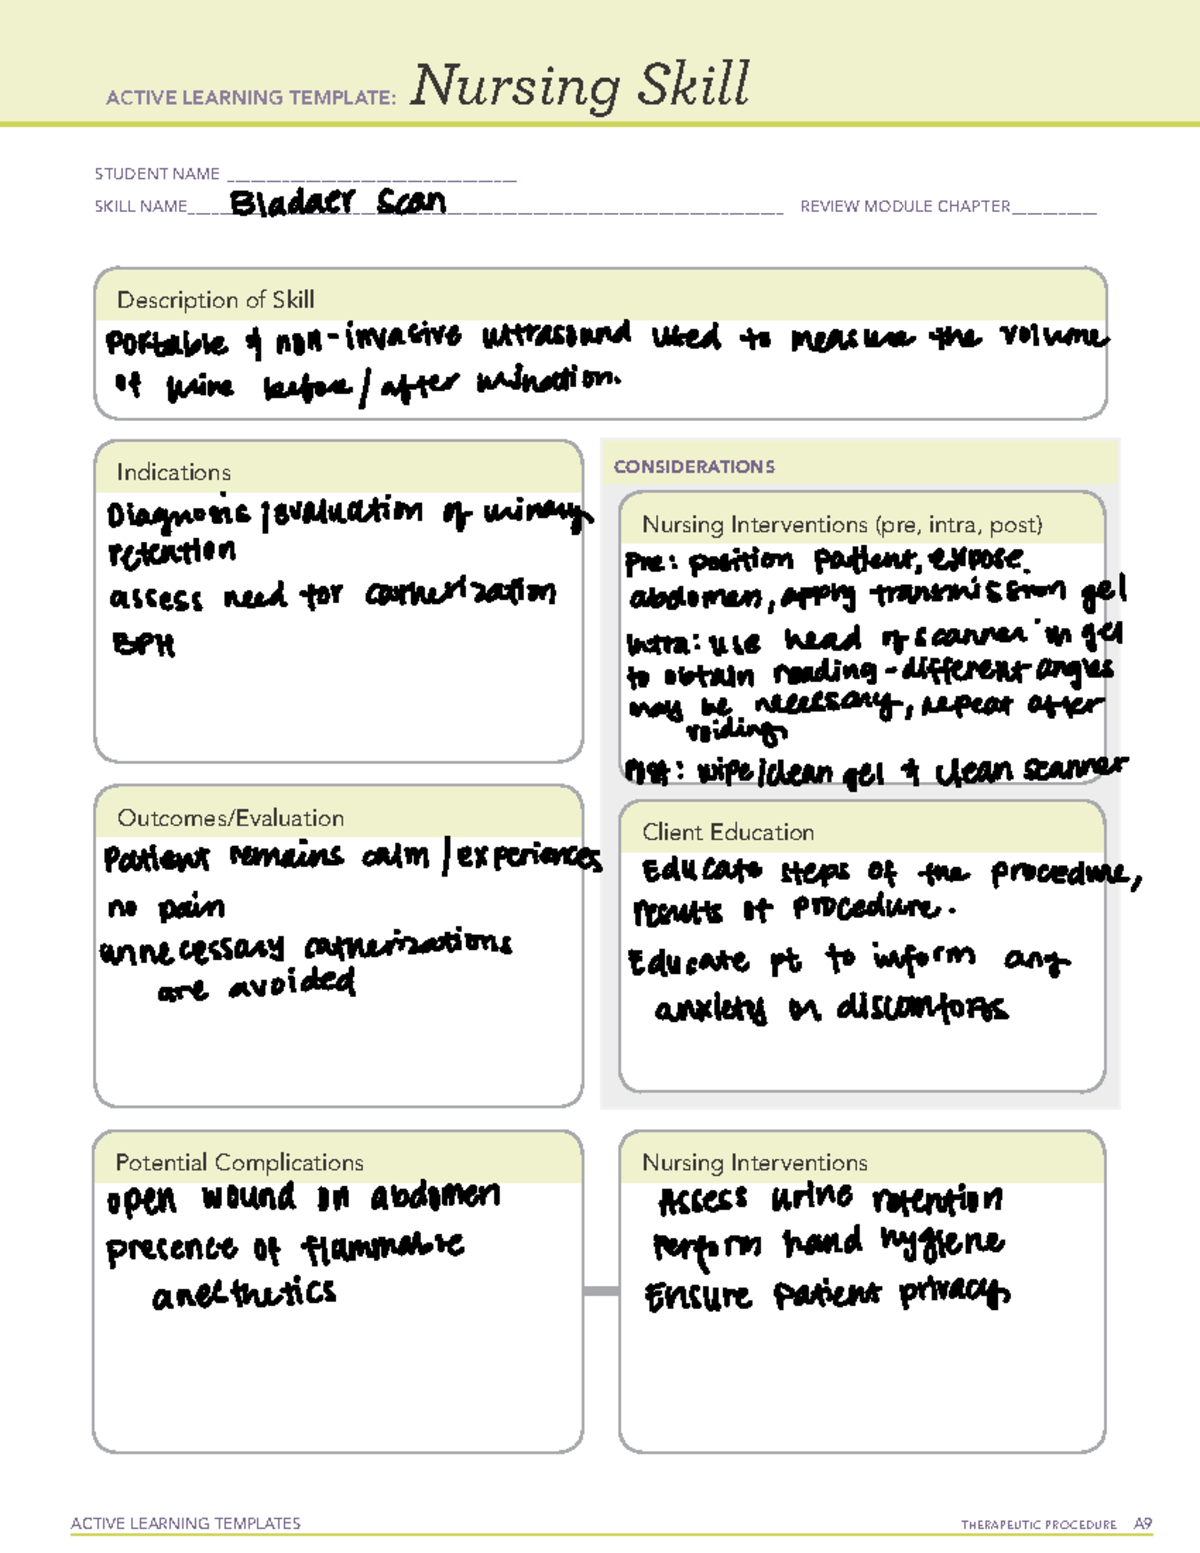 ACTIVE LEARNING TEMPLATE: Nursing Skill
STUDENT NAME
SKILL NAME Bladder Scan REVIEW MODULE CHAPTER
Description of Skill
Portable & non-invasive ultrasound used to measure the volume
of urine before/after urination.
Indications
Diagnosis/evaluation of urinary
retention
assess need for catherization
BPH
CONSIDERATIONS
Nursing Interventions (pre, intra, post)
Pre: position patient, expose
abdomen, apply transmission gel
Intra: use head of scanner in gel
to obtain reading - different angles
may be necessary, repeat after
voiding
Post: wipe/clean gel & clean scanner
Outcomes/Evaluation
Patient remains calm/experiences
no pain
unnecessary catherizations
are avoided
Client Education
Educate steps of the procedure,
results of procedure.
Educate pt to inform any
anxiety or discomforts
Potential Complications
open wound on abdomen
presence of flammable
anesthetics
Nursing Interventions
Assess urine retention
Perform hand hygiene
Ensure patient privacy
ACTIVE LEARNING TEMPLATES
THERAPEUTIC PROCEDURE A9